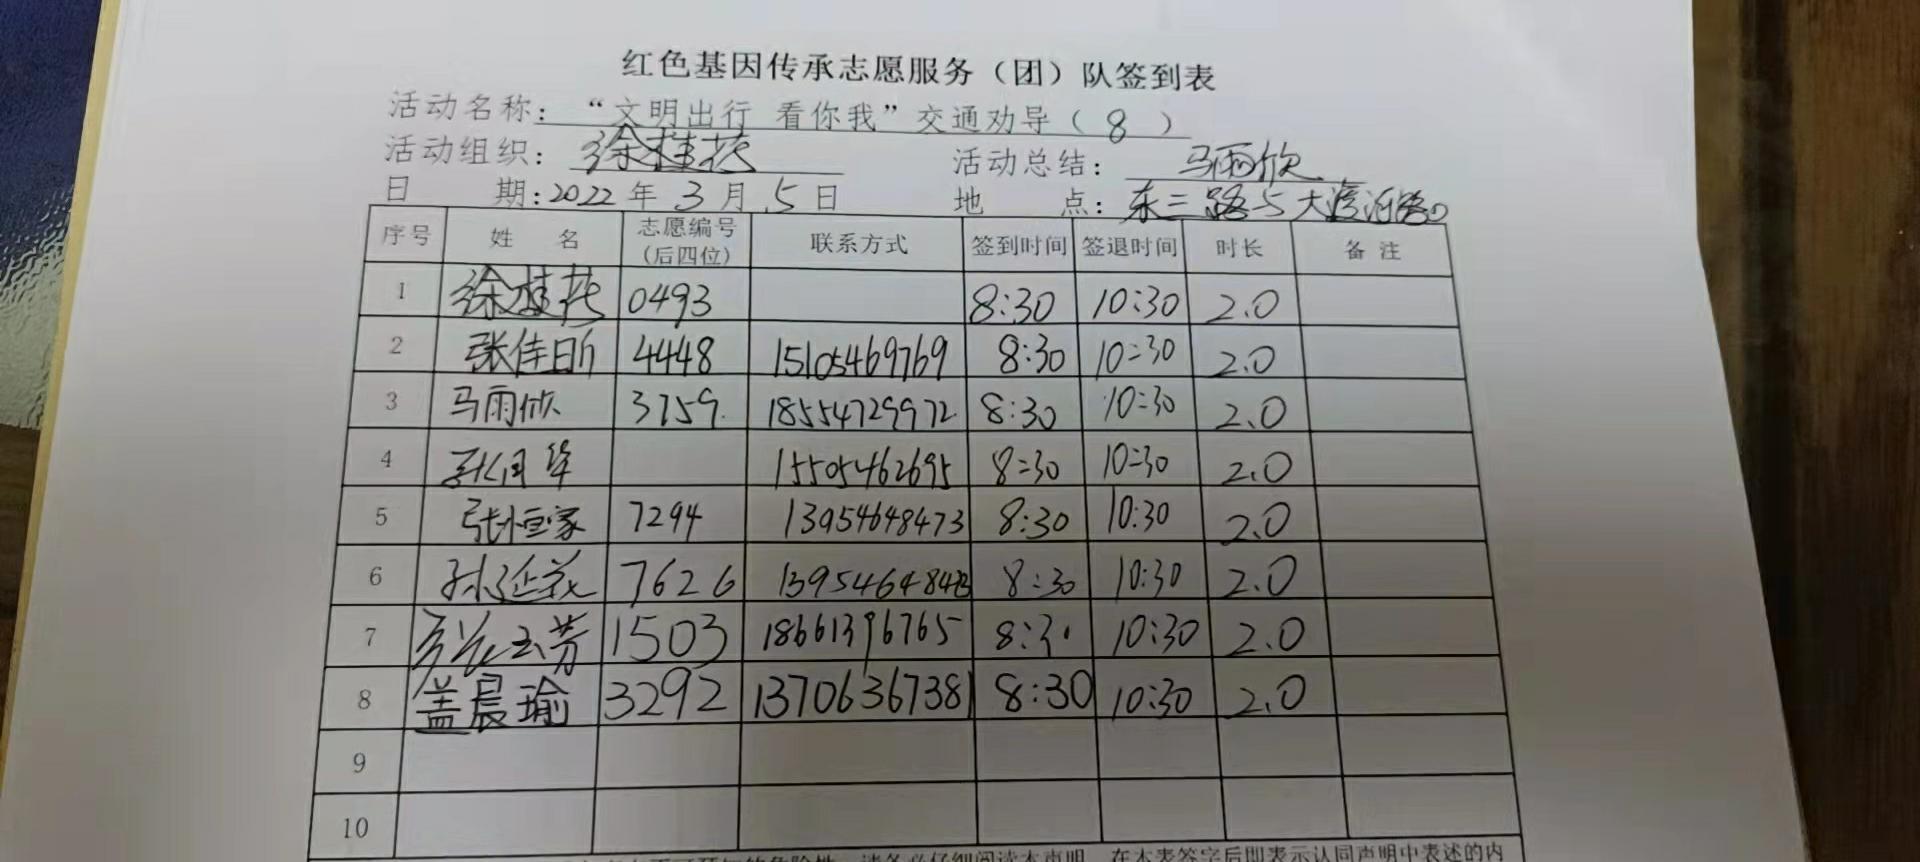 红色基因传承志愿服务（团）队签到表
活动名称：“文明出行 看你我”交通劝导（8）
活动组织：徐桂花 活动总结：马雨欣
日 期：2022年3月5日 地 点：东三路与大渡河路口
序号 姓 名 志愿编号（后四位） 联系方式 签到时间 签退时间 时长 备注
1 徐桂花 0493 8:30 10:30 2.0
2 张佳昕 4448 15105469769 8:30 10:30 2.0
3 马雨欣 3759 18554729972 8:30 10:30 2.0
4 15505462695 8:30 10:30 2.0
5 张恒家 7294 13954648473 8:30 10:30 2.0
6 孙延義 7626 8:30 10:30 2.0
7 1503 18661396765 8:30 10:30 2.0
8 盖晨瑜 3292 13706367381 8:30 10:30 2.0
9
10
请务必仔细阅读本声明，在本表签字后即表示认同声明中表述的内